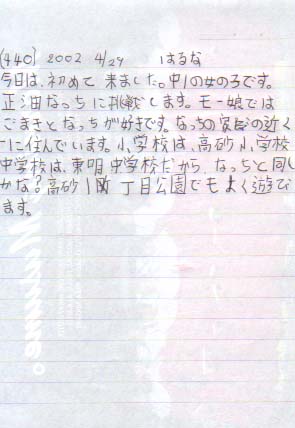 (440) 2002 4/29 はるな
今日は、初めて来ました。中1の女の子です。
正油なっちに挑戦します。モー娘では
ごまきとなっちが好きです。なっちの実家の近く
に住んでいます。小学校は、高砂小学校
中学校は、東明中学校だから、なっちと同じ
かな?高砂1町丁目公園でもよく遊び
ます。